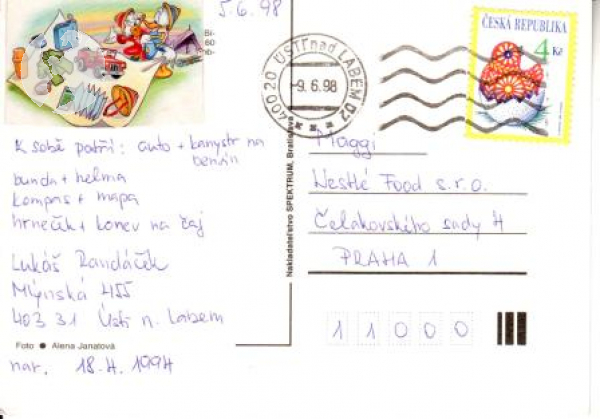 5.6.98
K sobě patří: auto + kanystr na
benzin
bunda + helma
kompas + mapa
hrneček + konev na čaj
Lukáš Randáček
Mlýnská 455
403 31 Ústí n. Labem
Foto ● Alena Janatová
nar. 18.4.1994
Nakladateľstvo SPEKTRUM, Bratislava
400 20 ÚSTÍ nad LABEM 02
-9.6.98
ČESKÁ REPUBLIKA
4 Kč
Maggi
Nestlé Food s.r.o.
Čelakovského sady 4
PRAHA 1
11000